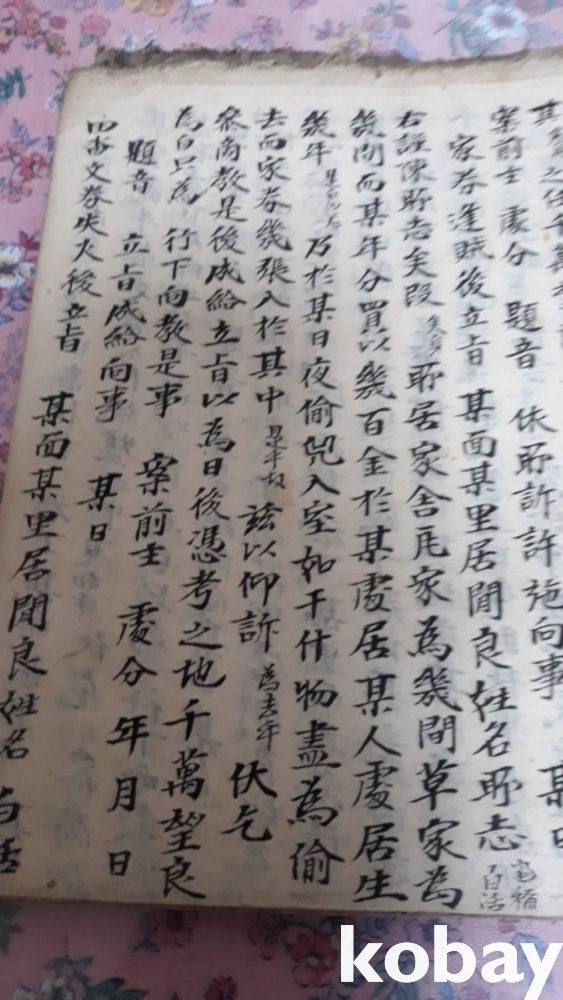 案前主 處分 題音 依所訴許施向事 某日
家券逢賊後立旨 某面某里居閒良姓名所志
右謹陳所志矣段 所居家舍瓦家為幾間草家為
幾間而某年分買以幾百金於某處居某人處居生
幾年 乃於某日夜偷兒入室如干什物盡為偷
去而家券幾張入於其中 是乎故 茲以仰訴 為去乎 伏乞
參商教是後成給立旨以為日後憑考之地千萬望良
為白只為 行下向教是事 案前主 處分 年 月 日
題音 立旨成給向事 某日
田畓文券失火後立旨 某面某里居閒良姓名
kobay